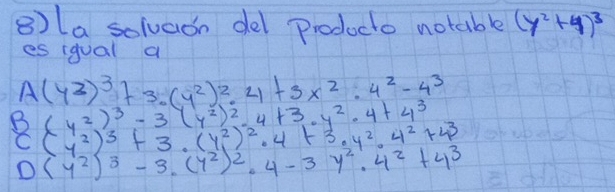 8) La solución del Producto notable (y²+4)³
es igual a
A (y2)³ + 3.(y²)².4 + 3x².4² - 4³
B (y²)³ - 3 (y²)².4 + 3.y².4 + 4³
C (y²)³ + 3.(y²)².4 + 3.y².4² + 4³
D (y²)³ - 3.(y²)².4 - 3 y².4² + 4³